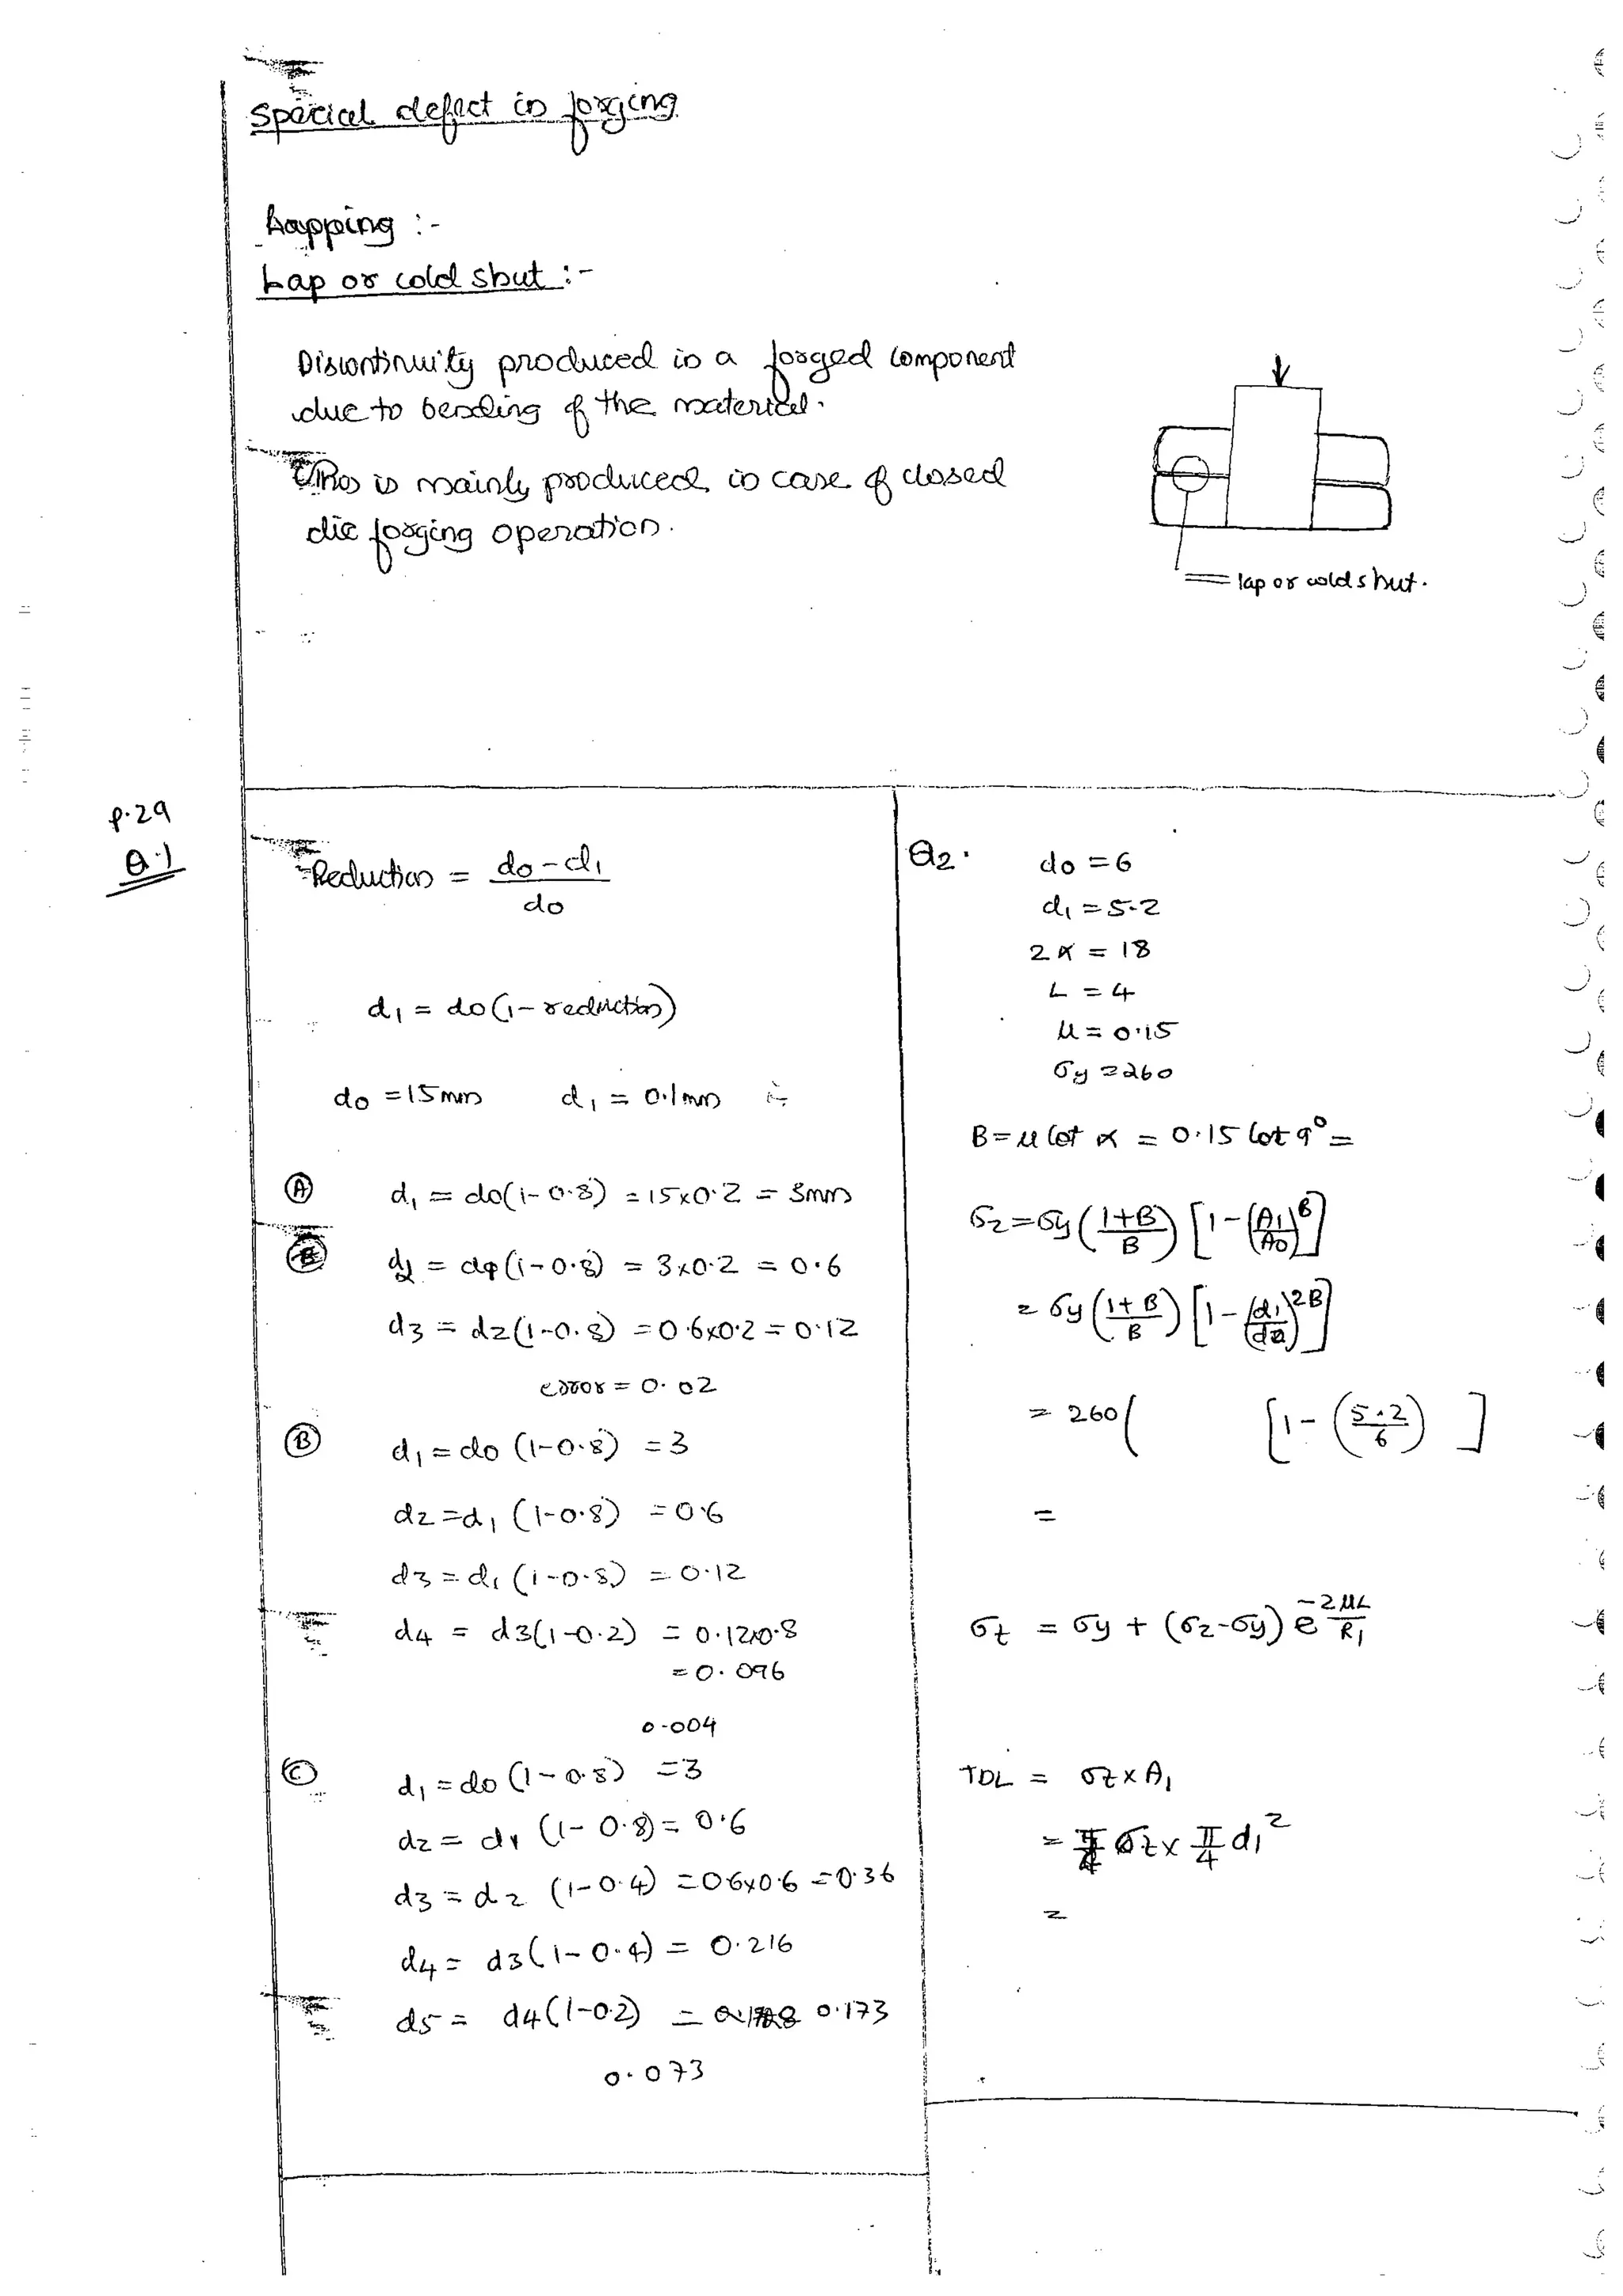 Special defect in forging
Lapping :-
Lap or cold shut :-
Discontinuity produced in a forged component
due to bending of the material.
This is mainly produced in case of closed
die forging operation.
lap or cold shut.
P.29
Q.1
Reduction = do-d1
do
d1 = do(1-reduction)
do = 15mm d1 = 0.1mm
(A) d1 = do(1-0.8) = 15x0.2 = 3mm
d2 = d1(1-0.8) = 3x0.2 = 0.6
d3 = d2(1-0.8) = 0.6x0.2 = 0.12
error = 0.02
(B) d1 = do (1-0.8) = 3
d2 = d1 (1-0.8) = 0.6
d3 = d1 (1-0.8) = 0.12
d4 = d3(1-0.2) = 0.12x0.8
= 0.096
0.004
(C) d1 = do (1-0.8) = 3
d2 = d1 (1-0.8) = 0.6
d3 = d2 (1-0.4) = 0.6x0.6 = 0.36
d4 = d3(1-0.4) = 0.216
d5 = d4(1-0.2) = 0.173
0.073
Q2. do = 6
d1 = 5.2
2α = 18
L = 4
μ = 0.15
σy = 260
B = μ Cot α = 0.15 Cot 9° =
σ2 = σy (1+B / B) [1-(A1/A0)^B]
= σy (1+B / B) [1-(d1/do)^2B]
= 260 ( [1-(5.2/6) ]
=
σt = σy + (σ2-σy) e^-2μL/R1
TDL = σt x A1
= σt x π/4 d1²
=